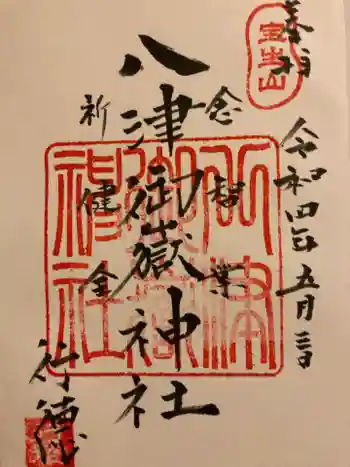 奉拝
令和四年五月三日
八津御嶽神社
祈念
健全
八津
御嶽
神社